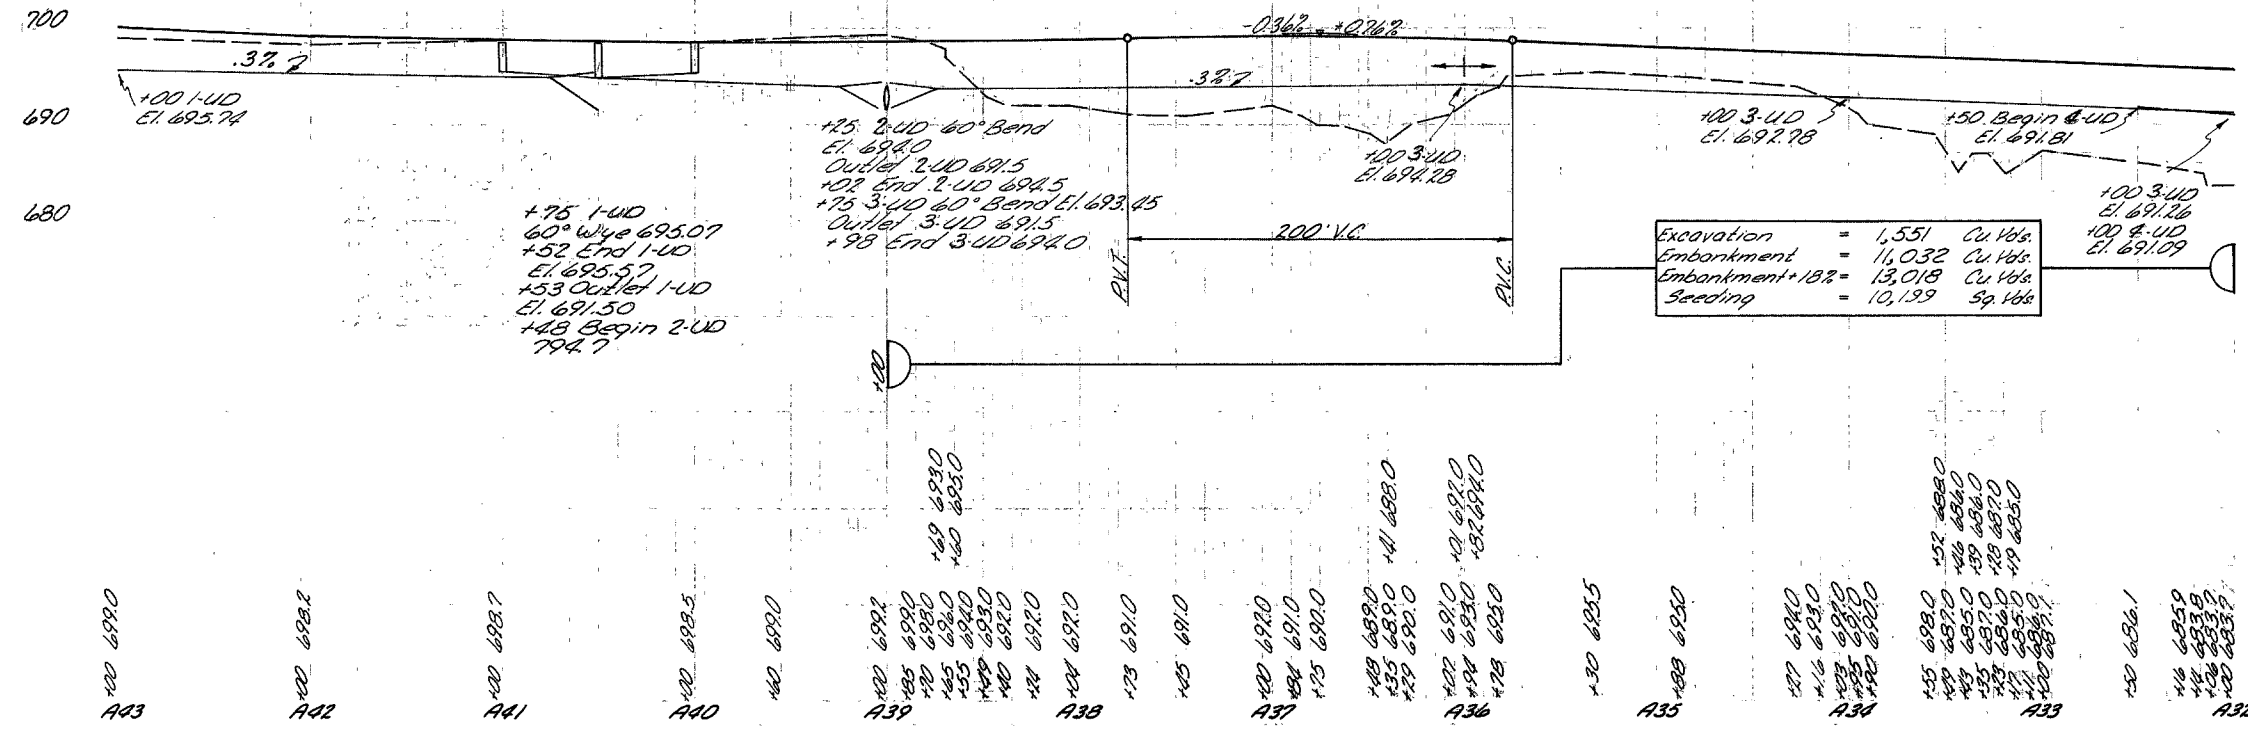 700
690
680
-0.36% +0.76%
.3%
.3%
+00 1-UD
El. 695.74
+25 2-UD 60° Bend
El. 694.0
Outlet 2-UD 691.5
+02 End 2-UD 694.5
+75 3-UD 60° Bend El. 693.45
Outlet 3-UD 691.5
+98 End 3-UD 694.0
+75 1-UD
60° Wye 695.07
+52 End 1-UD
El. 695.57
+53 Outlet 1-UD
El. 691.50
+48 Begin 2-UD
794.7
+00 3-UD
El. 694.28
+00 3-UD
El. 692.78
+50 Begin 4-UD
El. 691.81
+00 3-UD
El. 691.26
+00 4-UD
El. 691.09
200' V.C.
P.V.T.
P.V.C.
Excavation = 1,551 Cu. Yds.
Embankment = 11,032 Cu. Yds.
Embankment+18% = 13,018 Cu. Yds.
Seeding = 10,199 Sq. Yds.
+00
+69 693.0
+60 695.0
+41 688.0
+01 692.0
+82 694.0
+52 688.0
+46 686.0
+39 686.0
+28 687.0
+19 685.0
+00 699.0
+00 698.2
+00 698.7
+00 698.5
+60 699.0
+00 699.2
+85 699.0
+70 698.0
+65 696.0
+55 694.0
+49 693.0
+40 692.0
+24 692.0
+04 692.0
+73 691.0
+45 691.0
+00 692.0
+84 691.0
+75 690.0
+48 689.0
+35 689.0
+29 690.0
+02 691.0
+94 693.0
+78 695.0
+30 695.5
+88 695.0
+27 694.0
+16 693.0
+03 692.0
+95 691.0
+90 690.0
+55 698.0
+49 687.0
+43 685.0
+35 687.0
+23 686.0
+17 685.0
+50 686.1
+16 685.9
+14 683.8
+06 683.7
+00 683.7
A43 A42 A41 A40 A39 A38 A37 A36 A35 A34 A33 A32